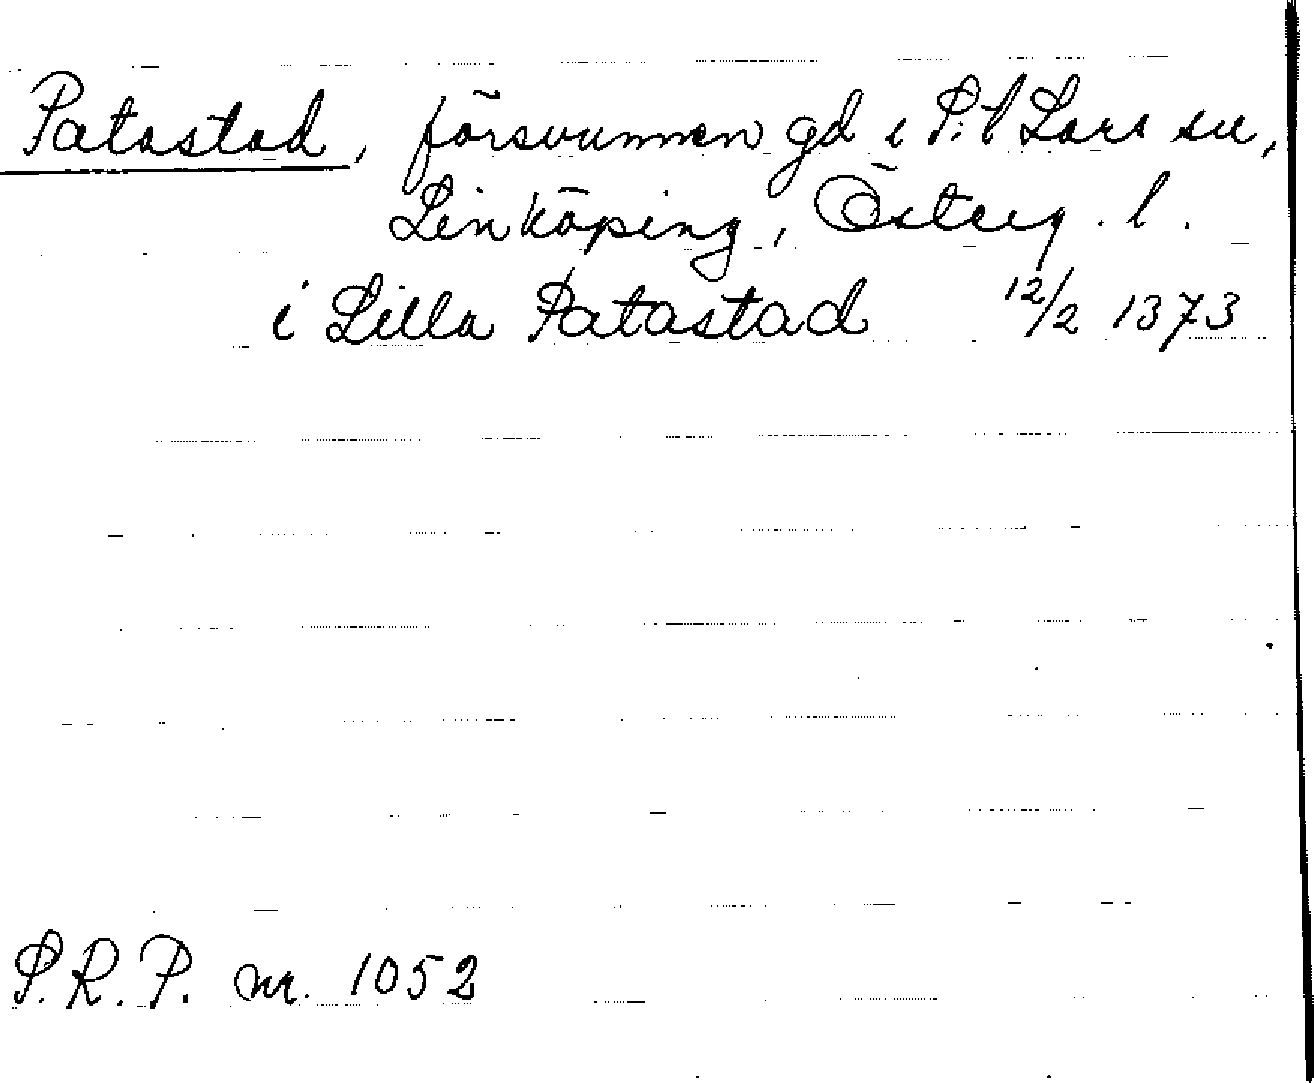 Patastad, försvunnen gd i S:t Lars sn,
Linköping, Österg. l.
i Lilla Patastad 12/2 1373
S.R.P. nr. 1052